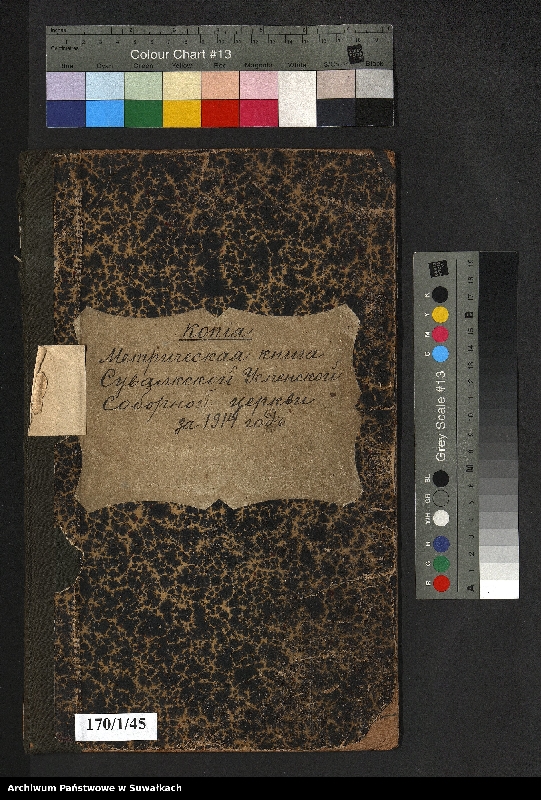 Colour Chart #13
Blue Cyan Green Yellow Red Magenta White 3/Color Black
Копія
Метрическая книга
Сувалкской Успенской
Соборной церкви
за 1914 годъ
Grey Scale #13
170/1/45
Archiwum Państwowe w Suwałkach